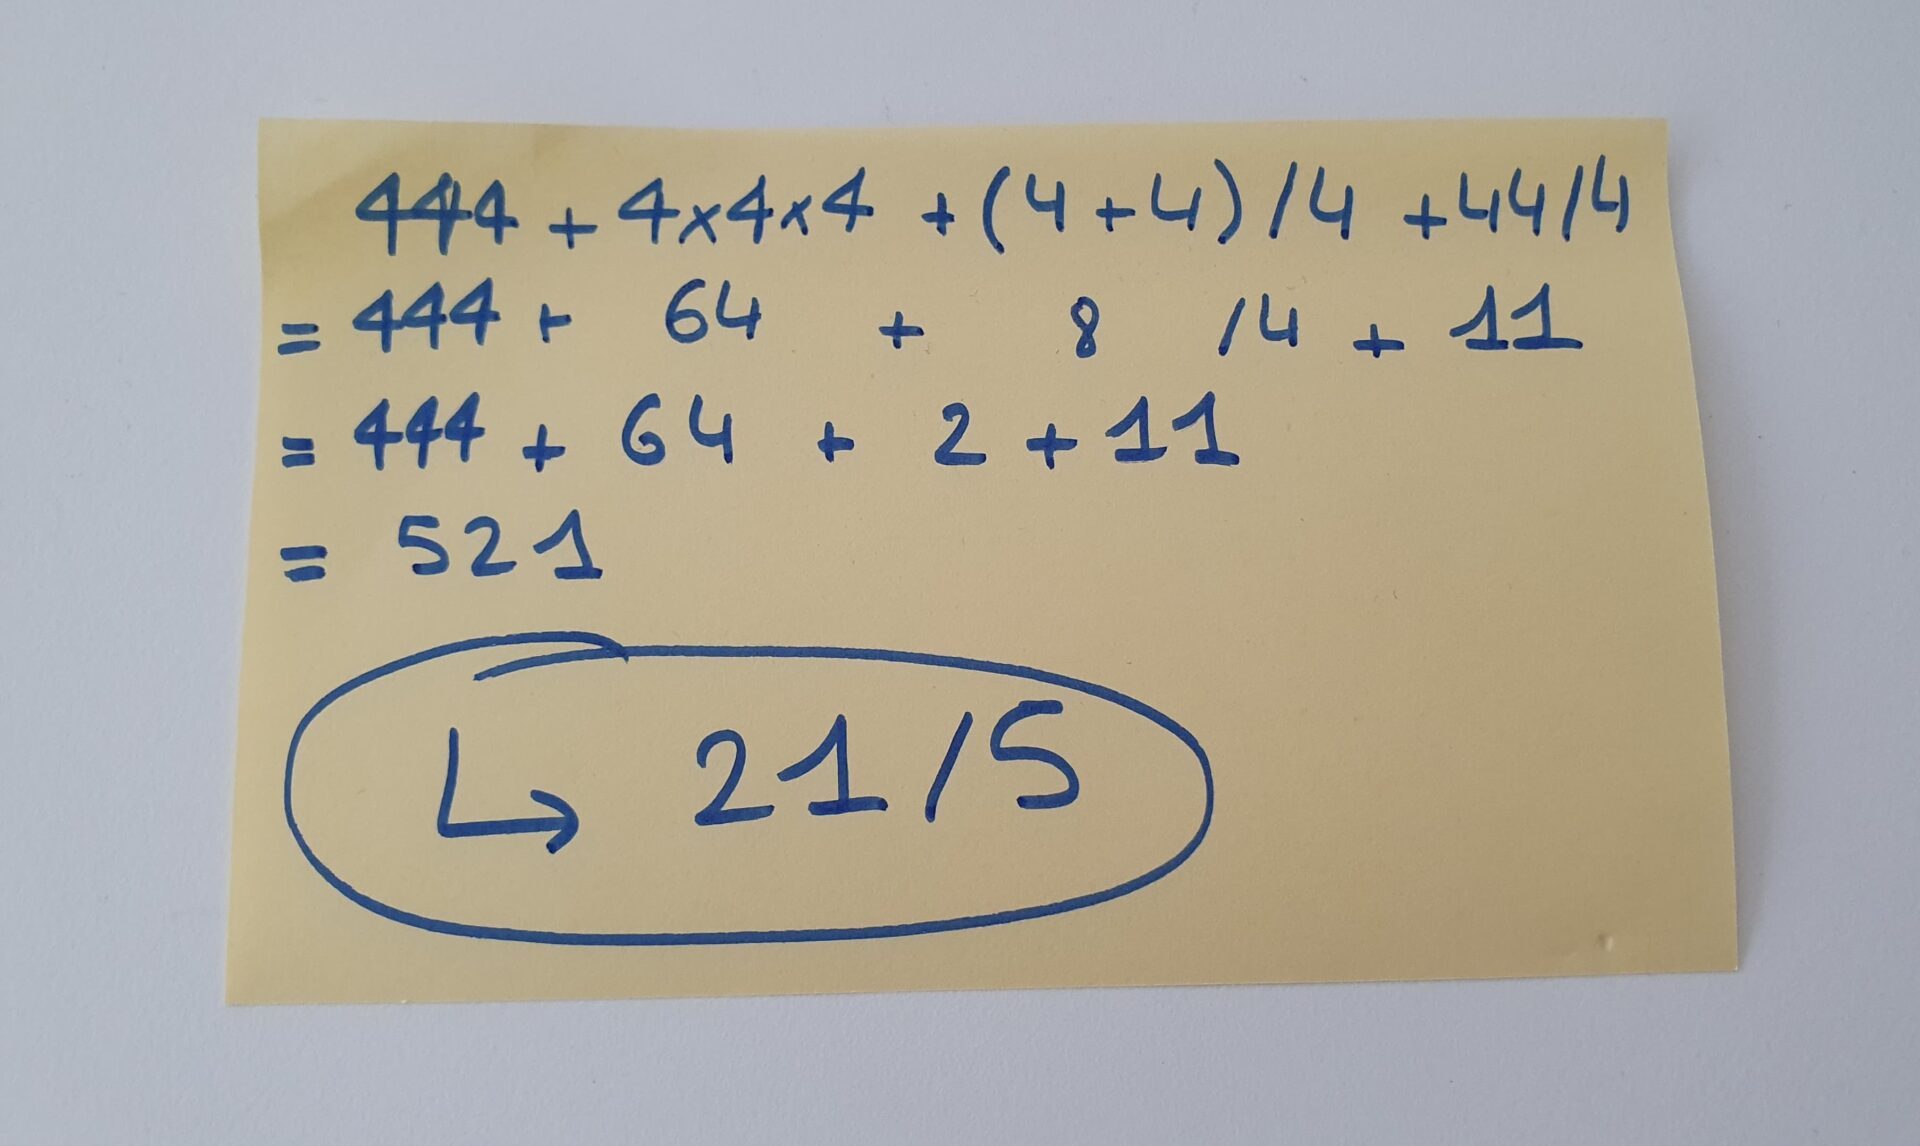 444 + 4×4×4 + (4+4)/4 + 44/4
= 444 + 64 + 8 /4 + 11
= 444 + 64 + 2 + 11
= 521
↳ 21/5